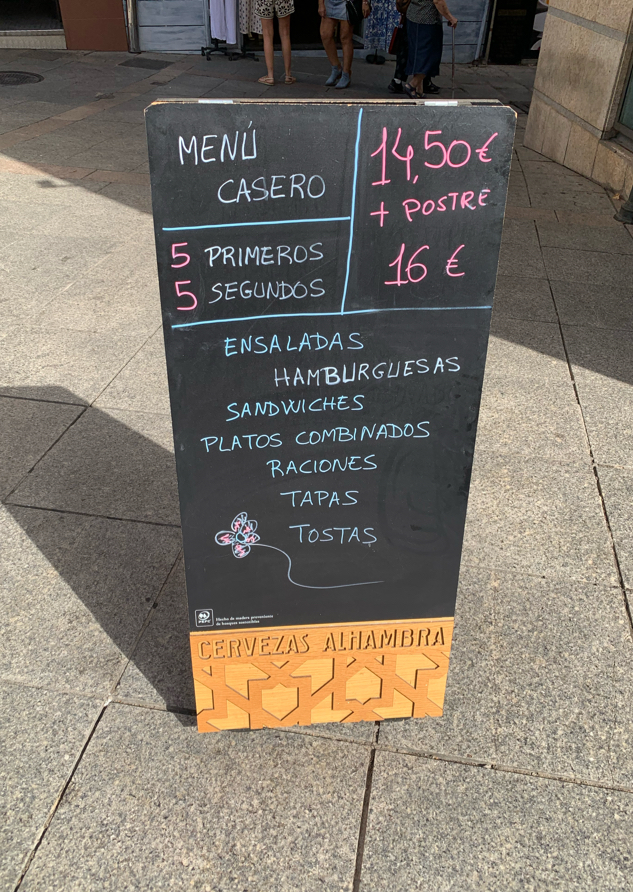 MENÚ
CASERO
14,50 €
+ POSTRE
16 €
5 PRIMEROS
5 SEGUNDOS
ENSALADAS
HAMBURGUESAS
SANDWICHES
PLATOS COMBINADOS
RACIONES
TAPAS
TOSTAS
PEFC
Hecho de madera proveniente
de bosques sostenibles
CERVEZAS ALHAMBRA